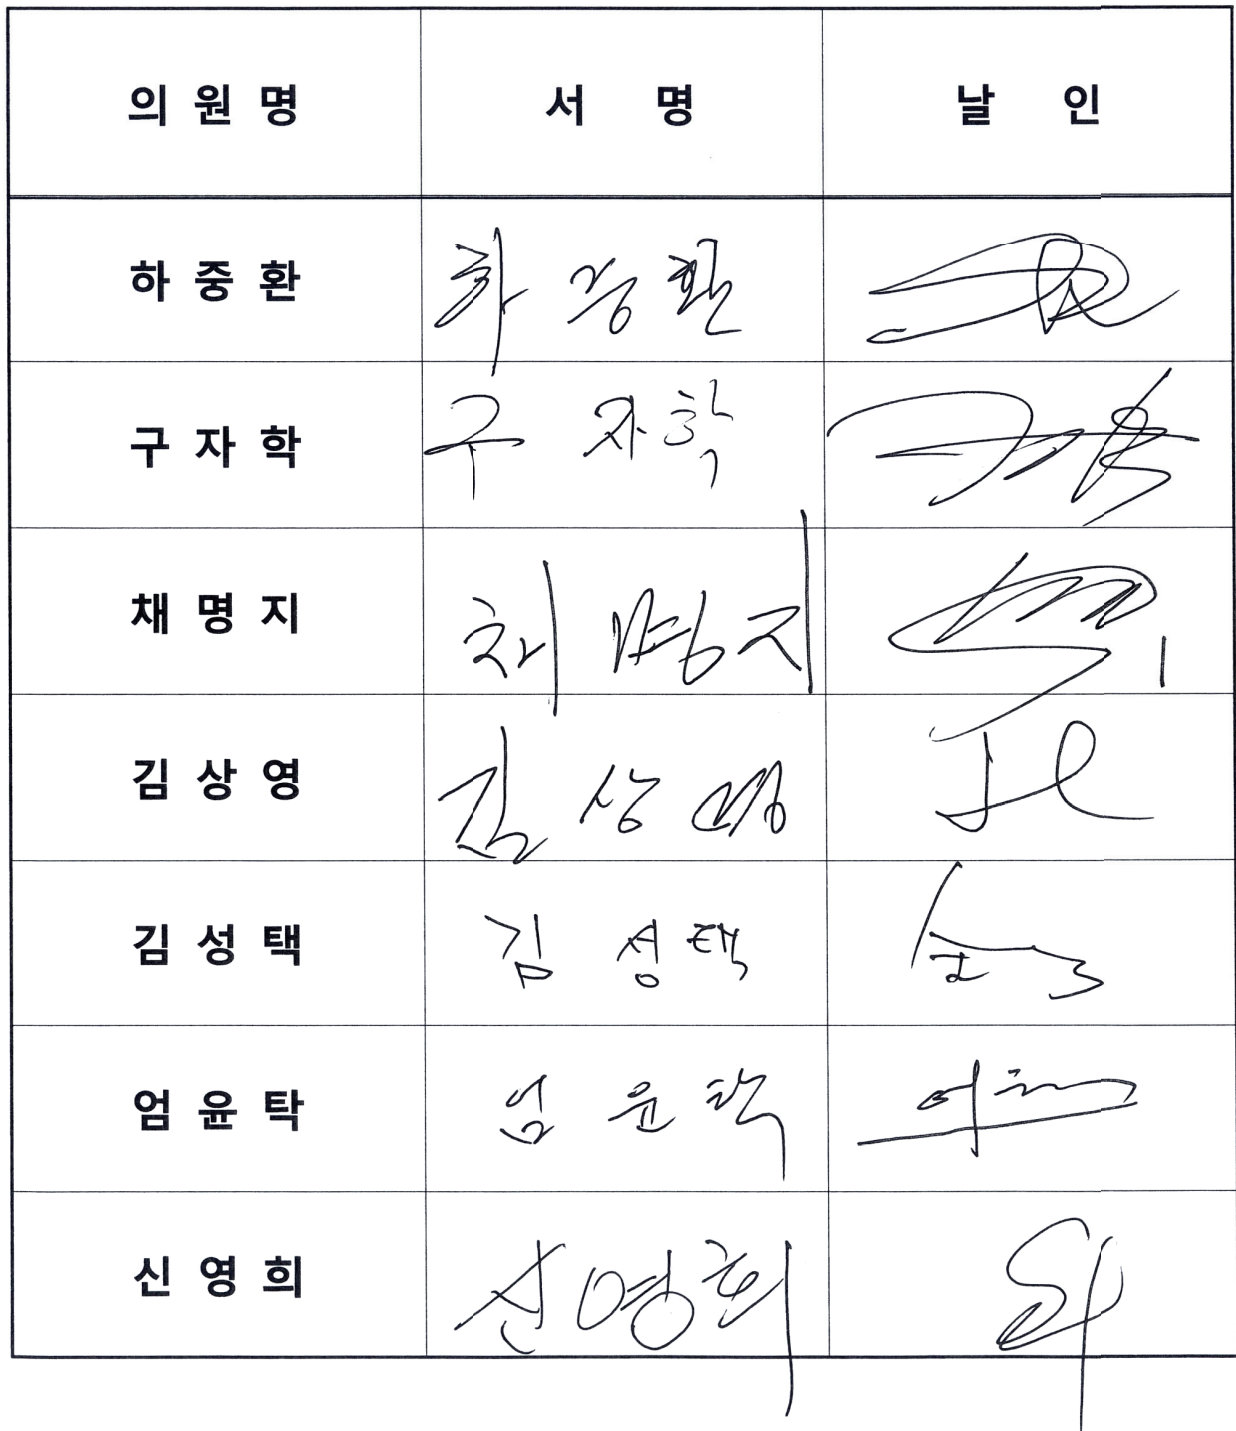 의 원 명 서 명 날 인
하 중 환 하 중 환
구 자 학 구 자 학
채 명 지 채 명 지
김 상 영 김 상 영
김 성 택 김 성 택
엄 윤 탁 엄 윤 탁
신 영 희 신 영 희